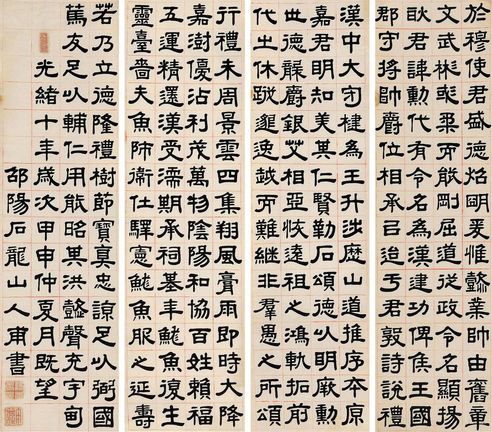 於穆使君盛德炤明爰惟懿業帥由舊章
文武而能剛屈道從政令名顯揚
耿君諱勳代有令名為漢建功俾侯王國
郡守將帥爵位相承㠯迄于君敦詩說禮
漢中大守楗為王升涉歷山道推序本原
嘉君明知美其仁賢勒石頌德以明厥勳
世德襲爵銀艾相亞恢顯祖之鴻軌拓前
代之休蹤邈逸越而難繼非羣愚之所頌
行禮未周景雲四集翔風膏雨即時大降
嘉澍優沾利茂萬物陰陽和協百姓賴福
五運精還漢受濡期承祠基年魚復生
靈臺嗇夫魚師衛仕驛憲魚服之延壽
若乃立德隆禮樹節寶真忠諒足以弼國
篤友足以輔仁用能昭其洪懿聲充宇甸
光緒十年歲次甲申仲夏月既望
邵陽石龍山人甫書